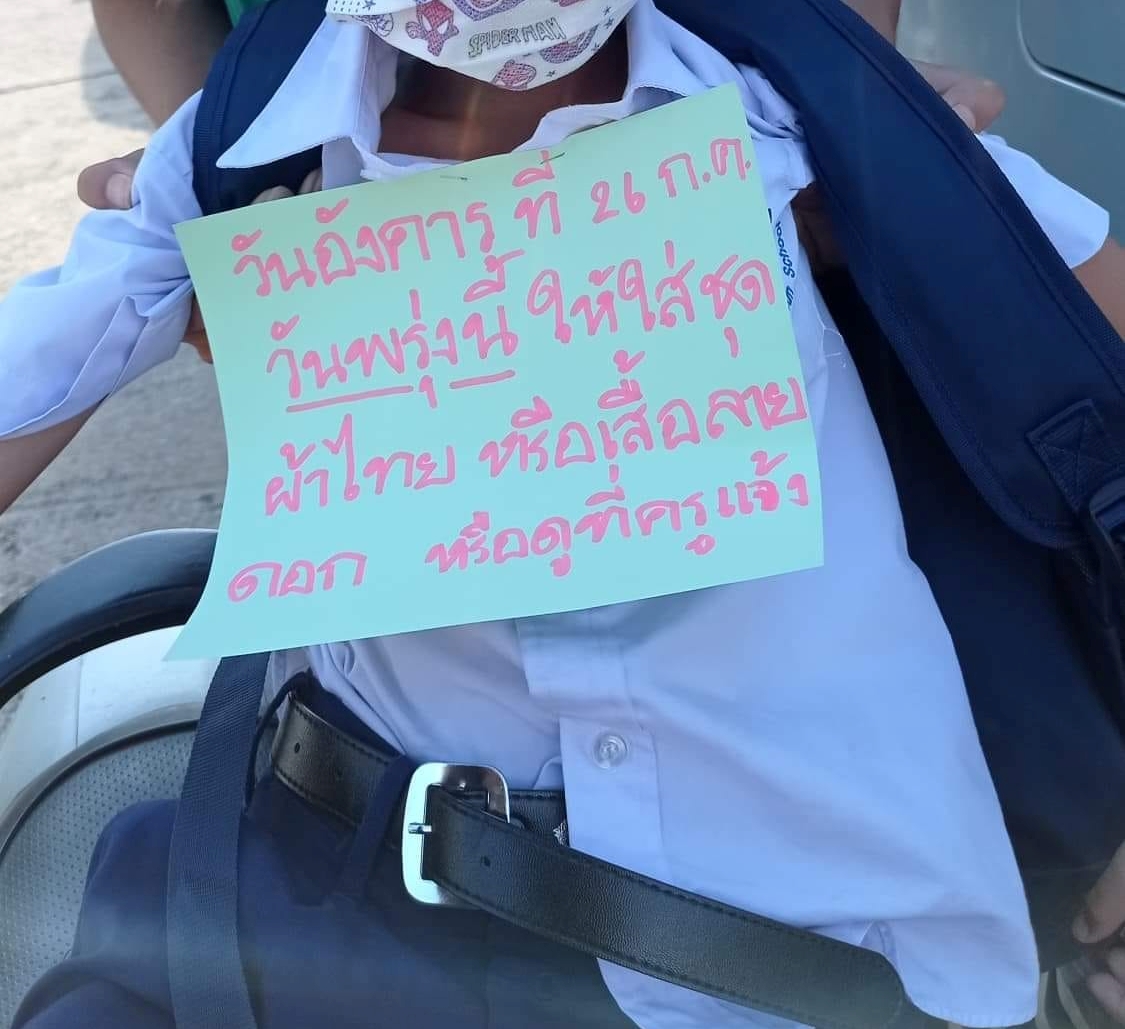 SPIDER MAN
วันอังคาร ที่ 26 ก.ค.
วันพรุ่งนี้ ให้ใส่ชุด
ผ้าไทย หรือเสื้อลาย
ดอก หรือดูที่ครูแจ้ง
School